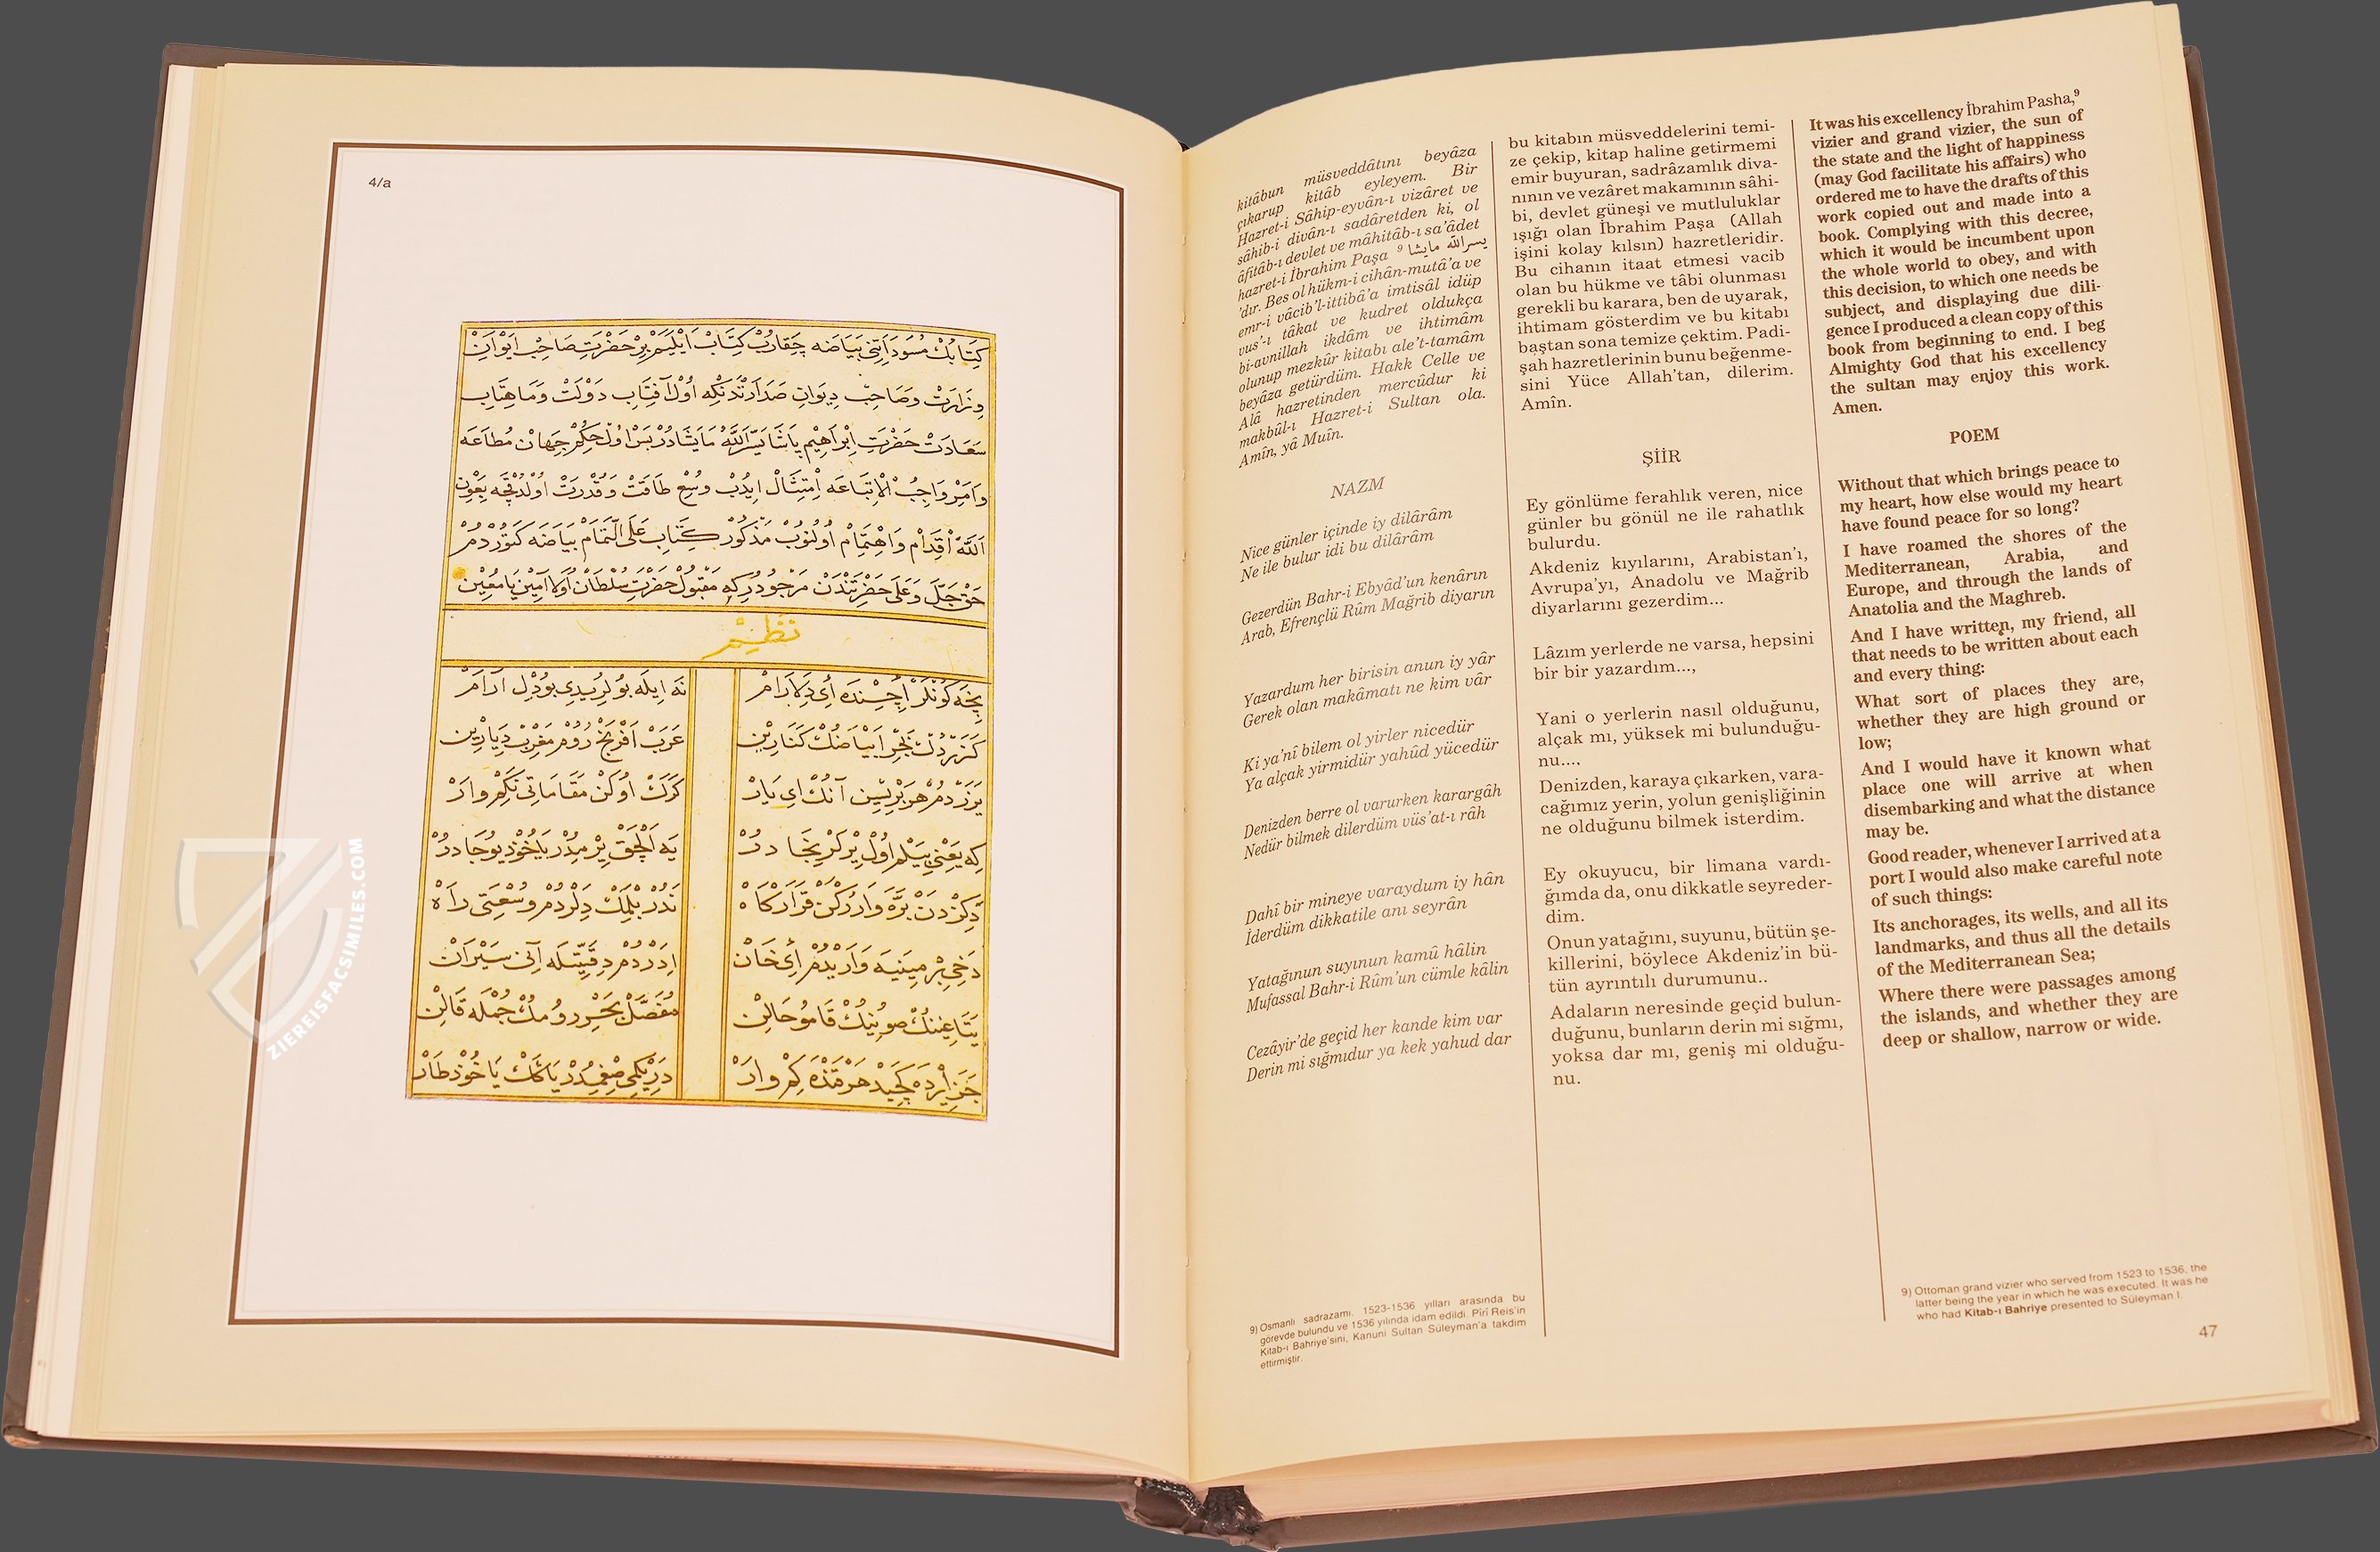 4/a
كِتَابُكْ مُسَوَّدَاتِنِي بَيَاضَه چِقَارُبْ كِتَابْ اَيْلَيَمْ بِرْ حَضْرَتِ صَاحِبْ اَيْوَانِ
وِزَارَتْ وَصَاحِبِ دِيوَانِ صَدَارَتْدَنْكِه اُولْ آفِتَابِ دَوْلَتْ وَمَاهِتَابِ
سَعَادَتْ حَضْرَتِ اِبْرَاهِيْم پَاشَا يَسَّرَ اللّٰهُ مَايَشَا دُرْ بَسْ اُولْ حُكْمِ جِهَانْ مُطَاعَه
وَاَمْرِ وَاجِبُ الْاِتِّبَاعَه اِمْتِثَالْ ايدُبْ وُسْعِ طَاقَتْ وَقُدْرَتْ اُولْدُقْچَه بِعَوْنِ
اللّٰهْ اِقْدَامْ وَاِهْتِمَامْ اُولُنُوبْ مَذْكُورْ كِتَابِ عَلَى التَّمَامْ بَيَاضَه كَتُورْدُمْ
حَقْ جَلَّ وَعَلَى حَضْرَتِنْدَنْ مَرْجُودُرْكِه مَقْبُولْ حَضْرَتِ سُلْطَانْ اُولَا آمِيْنْ يَا مُعِيْنْ
نَظْم
نِيچَه كُونْلَرْ اِچِنْدَه اَيْ دِلَارَامْ
نَه ايلَه بُولُرِيدِي بُو دِلْ آرَامْ
كَزَرْدُكْ بَحْرِ اَبْيَاضُكْ كَنَارِيْن
عَرَبْ اَفْرَنْجْ رُومْ مَغْرِبْ دِيَارِيْن
يَزَرْدُمْ هَر بِرِيسِين آنُكْ اَي يَارْ
كَرَكْ اُولَنْ مَقَامَاتِي نَكِمْ وَارْ
كِه يَعْنِي بِيلَمْ اُولْ يِرْلَرْ نِجَا دُرْ
يَه اَلْچَقْ يِرْمِيدُرْ يَاخُوذْ يُوجَا دُرْ
دَكِزْدَنْ بَرَّه وَارُرْكَنْ قَرَارْكَاهْ
نَدُرْ بِلْمَكْ دِلَرْدُمْ وُسْعَتِي رَاهْ
دَخِي بِرْ مِينَيَه وَارَيْدُمْ اَيْ خَانْ
اِدَرْدُمْ دِقَّتِيلَه آنِي سَيْرَانْ
يَتَاغِنُكْ صُويُنُكْ قَامُو حَالِنْ
مُفَصَّلْ بَحْرِ رُومُكْ جُمْلَه قَالِنْ
جَزَايِرْدَه كَچِيدْ هَر قَنْدَه كِمْ وَارْ
دَرِيْنْمِي صِغْمِيدُرْ يَا كَكْ يَاخُوذْ طَارْ
kitâbun müsveddâtını beyâza
çıkarup kitâb eyleyem. Bir
Hazret-i Sâhip-eyvân-ı vizâret ve
sâhib-i divân-ı sadâretden ki, ol
âfitâb-ı devlet ve mâhitâb-ı sa'âdet
hazret-i İbrahim Paşa ⁹ يسرالله مايشا
'dır. Bes ol hükm-i cihân-mutâ'a ve
emr-i vâcib'l-ittibâ'a imtisâl idüp
vus'-ı tâkat ve kudret oldukça
bi-avnillah ikdâm ve ihtimâm
olunup mezkûr kitabı ale't-tamâm
beyâza getürdüm. Hakk Celle ve
Alâ hazretinden mercûdur ki
makbûl-ı Hazret-i Sultan ola.
Amîn, yâ Muîn.
NAZM
Nice günler içinde iy dilârâm
Ne ile bulur idi bu dilârâm
Gezerdün Bahr-i Ebyâd'un kenârın
Arab, Efrençlü Rûm Mağrib diyarın
Yazardum her birisin anun iy yâr
Gerek olan makâmatı ne kim vâr
Ki ya'nî bilem ol yirler nicedür
Ya alçak yirmidür yahûd yücedür
Denizden berre ol varurken karargâh
Nedür bilmek dilerdüm vüs'at-ı râh
Dahî bir mineye varaydum iy hân
İderdüm dikkatile anı seyrân
Yatağınun suyınun kamû hâlin
Mufassal Bahr-i Rûm'un cümle kâlin
Cezâyir'de geçid her kande kim var
Derin mi sığmıdur ya kek yahud dar
9) Osmanlı sadrazamı. 1523-1536 yılları arasında bu
görevde bulundu ve 1536 yılında idam edildi. Pîrî Reis'in
Kitab-ı Bahriye'sini, Kanuni Sultan Süleyman'a takdim
ettirmiştir.
bu kitabın müsveddelerini temi-
ze çekip, kitap haline getirmemi
emir buyuran, sadrâzamlık diva-
nının ve vezâret makamının sâhi-
bi, devlet güneşi ve mutluluklar
ışığı olan İbrahim Paşa (Allah
işini kolay kılsın) hazretleridir.
Bu cihanın itaat etmesi vacib
olan bu hükme ve tâbi olunması
gerekli bu karara, ben de uyarak,
ihtimam gösterdim ve bu kitabı
baştan sona temize çektim. Padi-
şah hazretlerinin bunu beğenme-
sini Yüce Allah'tan, dilerim.
Amîn.
ŞİİR
Ey gönlüme ferahlık veren, nice
günler bu gönül ne ile rahatlık
bulurdu.
Akdeniz kıyılarını, Arabistan'ı,
Avrupa'yı, Anadolu ve Mağrib
diyarlarını gezerdim...
Lâzım yerlerde ne varsa, hepsini
bir bir yazardım...,
Yani o yerlerin nasıl olduğunu,
alçak mı, yüksek mi bulunduğu-
nu...,
Denizden, karaya çıkarken, vara-
cağımız yerin, yolun genişliğinin
ne olduğunu bilmek isterdim.
Ey okuyucu, bir limana vardı-
ğımda da, onu dikkatle seyreder-
dim.
Onun yatağını, suyunu, bütün şe-
killerini, böylece Akdeniz'in bü-
tün ayrıntılı durumunu..
Adaların neresinde geçid bulun-
duğunu, bunların derin mi sığmı,
yoksa dar mı, geniş mi olduğu-
nu.
It was his excellency İbrahim Pasha,⁹
vizier and grand vizier, the sun of
the state and the light of happiness
(may God facilitate his affairs) who
ordered me to have the drafts of this
work copied out and made into a
book. Complying with this decree,
which it would be incumbent upon
the whole world to obey, and with
this decision, to which one needs be
subject, and displaying due dili-
gence I produced a clean copy of this
book from beginning to end. I beg
Almighty God that his excellency
the sultan may enjoy this work.
Amen.
POEM
Without that which brings peace to
my heart, how else would my heart
have found peace for so long?
I have roamed the shores of the
Mediterranean, Arabia, and
Europe, and through the lands of
Anatolia and the Maghreb.
And I have written, my friend, all
that needs to be written about each
and every thing:
What sort of places they are,
whether they are high ground or
low;
And I would have it known what
place one will arrive at when
disembarking and what the distance
may be.
Good reader, whenever I arrived at a
port I would also make careful note
of such things:
Its anchorages, its wells, and all its
landmarks, and thus all the details
of the Mediterranean Sea;
Where there were passages among
the islands, and whether they are
deep or shallow, narrow or wide.
9) Ottoman grand vizier who served from 1523 to 1536, the
latter being the year in which he was executed. It was he
who had Kitab-ı Bahriye presented to Süleyman I.
47
ZIEREISFACSIMILES.COM